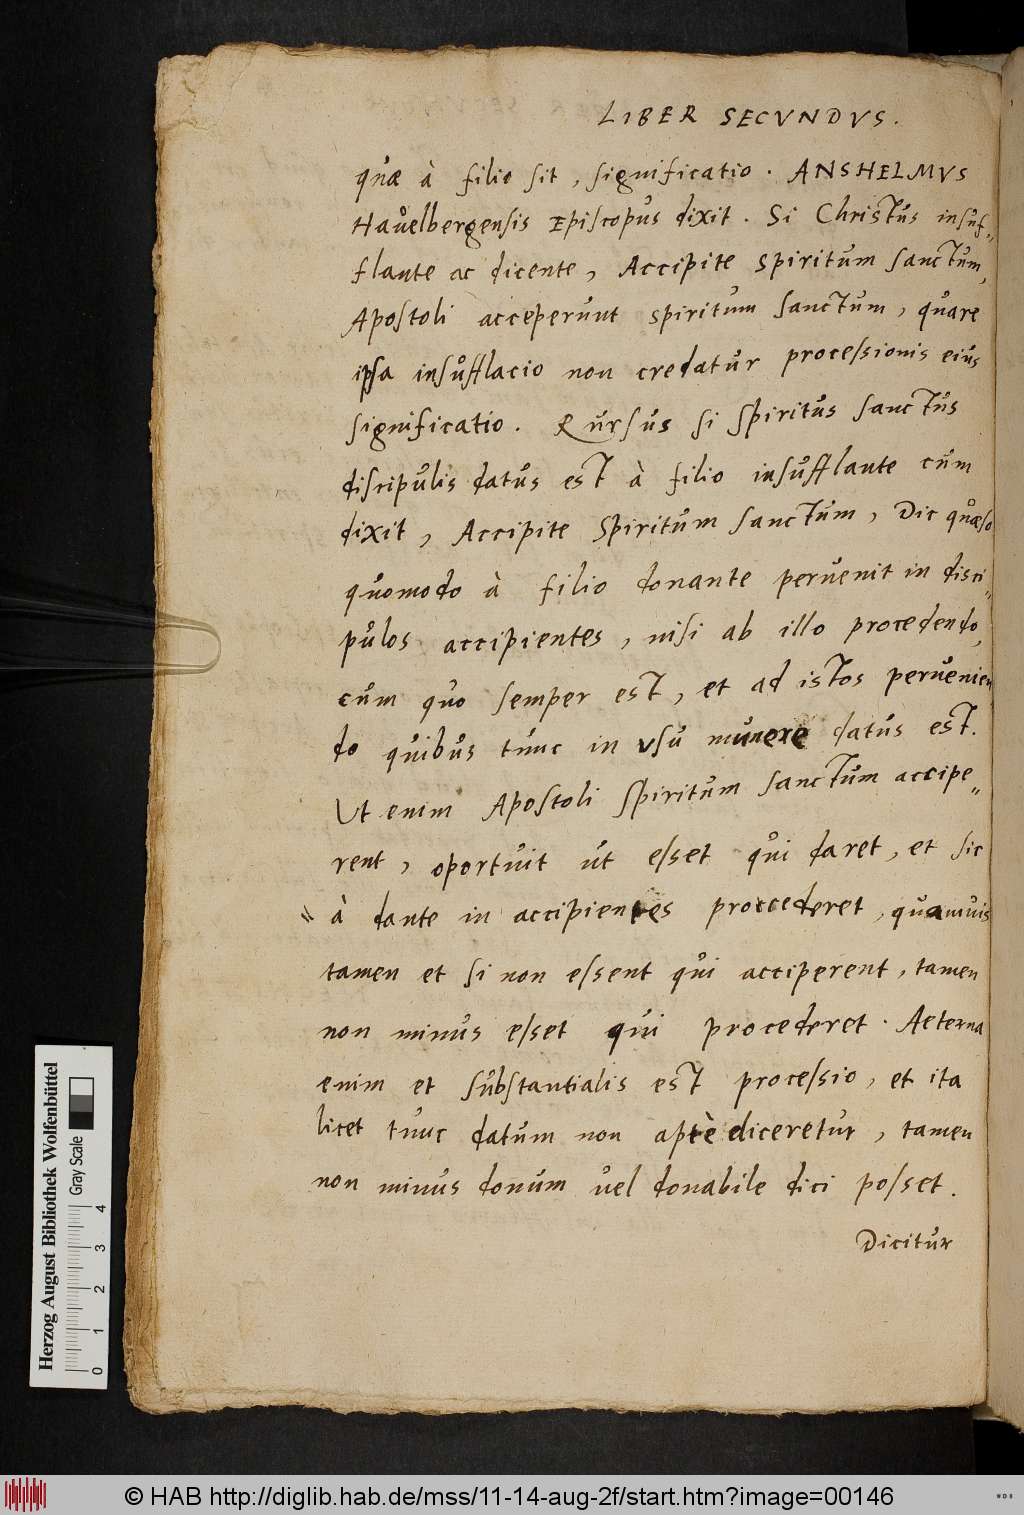 LIBER SECVNDVS.
quæ à filio sit, significatio. ANSHELMVS
Hauelbergensis Episcopus dixit. Si Christus insuf„
flante ac dicente, Accipite Spiritum sanctum,
Apostoli acceperunt spiritum sanctum, quare
ipsa insufflacio non credatur processionis eius
significatio. Rursus si spiritus sanctus
discipulis datus est à filio insufflante cum
dixit, Accipite Spiritum sanctum, Dic quæso
quomodo à filio donante peruenit in disci„
pulos accipientes, nisi ab illo procedendo,
cum quo semper est, et ad istos peruenien
do quibus tunc in vsu munere datus est.
Ut enim Apostoli spiritum sanctum accipe„
rent, oportuit ut esset qui daret, et sic
à dante in accipientes procederet, quamuis
tamen et si non essent qui acciperent, tamen
non minus esset qui procederet. Aeterna
enim et substantialis est processio, et ita
licet tunc datum non aptè diceretur, tamen
non minus donum uel donabile dici posset.
Dicitur
Herzog August Bibliothek Wolfenbüttel
Gray Scale
0 1 2 3 4
© HAB http://diglib.hab.de/mss/11-14-aug-2f/start.htm?image=00146